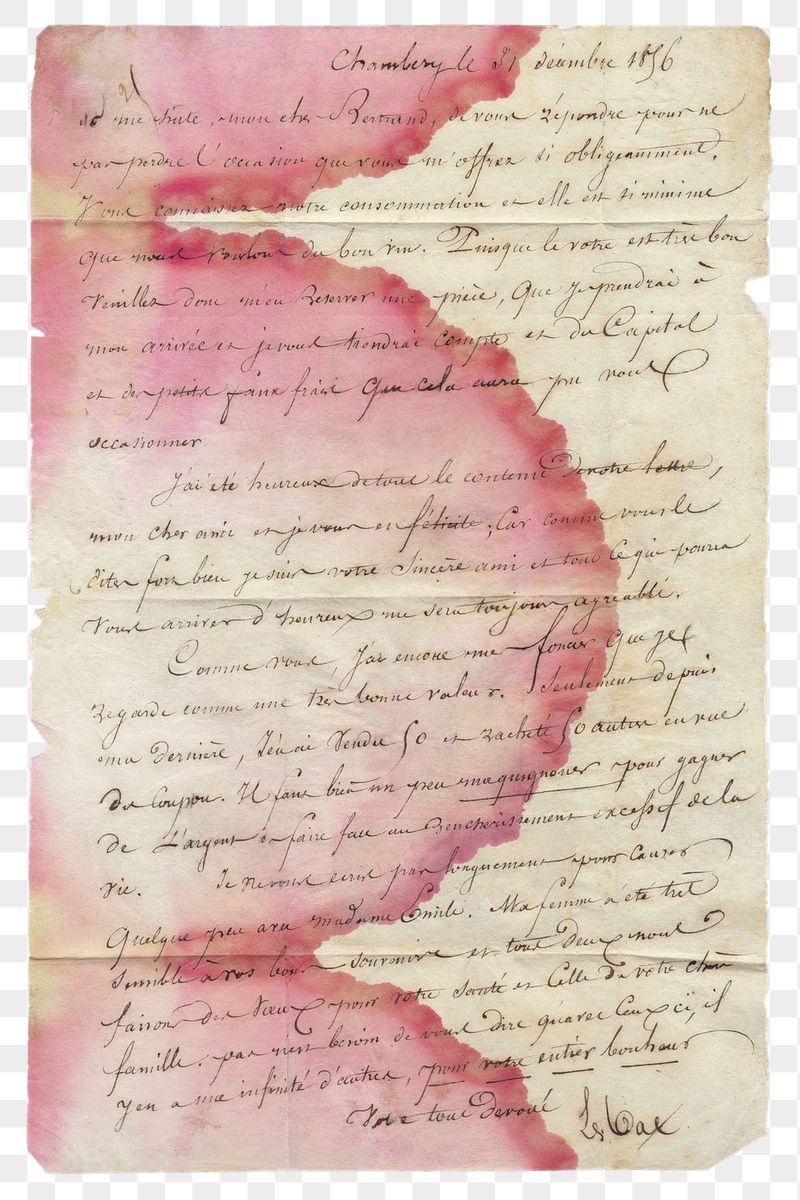 Chambery le 31 décembre 1856
me hâte, mon cher Bertrand, de vous répondre pour ne
pas perdre l'occasion que vous m'offrez si obligeamment.
Vous connaissez notre consommation et elle est si minime
que nous voulons du bon vin. Puisque le votre est très bon
Veuillez donc m'en Reserver une pièce, que je prendrai à
mon arrivée et je vous tiendrai compte et du Capital
et des petits faux frais que cela aura pu vous
occasionner.
J'ai été heureux de tout le contenu de votre lettre,
mon cher ami et je vous en félicite, Car comme vous le
dites fort bien je suis votre Sincère ami et tout ce qui pourra
Vous arriver d'heureux me sera toujours agréable.
Comme vous, j'ai encore me foncier que je
regarde comme une très bonne valeur. Seulement depuis
ma dernière, j'en ai Vendu 50 et racheté 50 autres en vue
du Coupon. Il faut bien un peu maquignoner pour gagner
de L'argent et faire face au Rencherissement excessif de la
vie. Je ne vous écris pas longuement pour Causer
Quelque peu avec madame Emile. Ma femme a été très
Sensible à vos bons souvenirs et tous deux nous
faisons des Vœux pour votre Santé et Celle de votre chère
famille. pas n'est besoin de vous dire qu'avec Ceux ci, il
y en a une infinité d'autres, pour votre entier bonheur
Votre tout Devoué